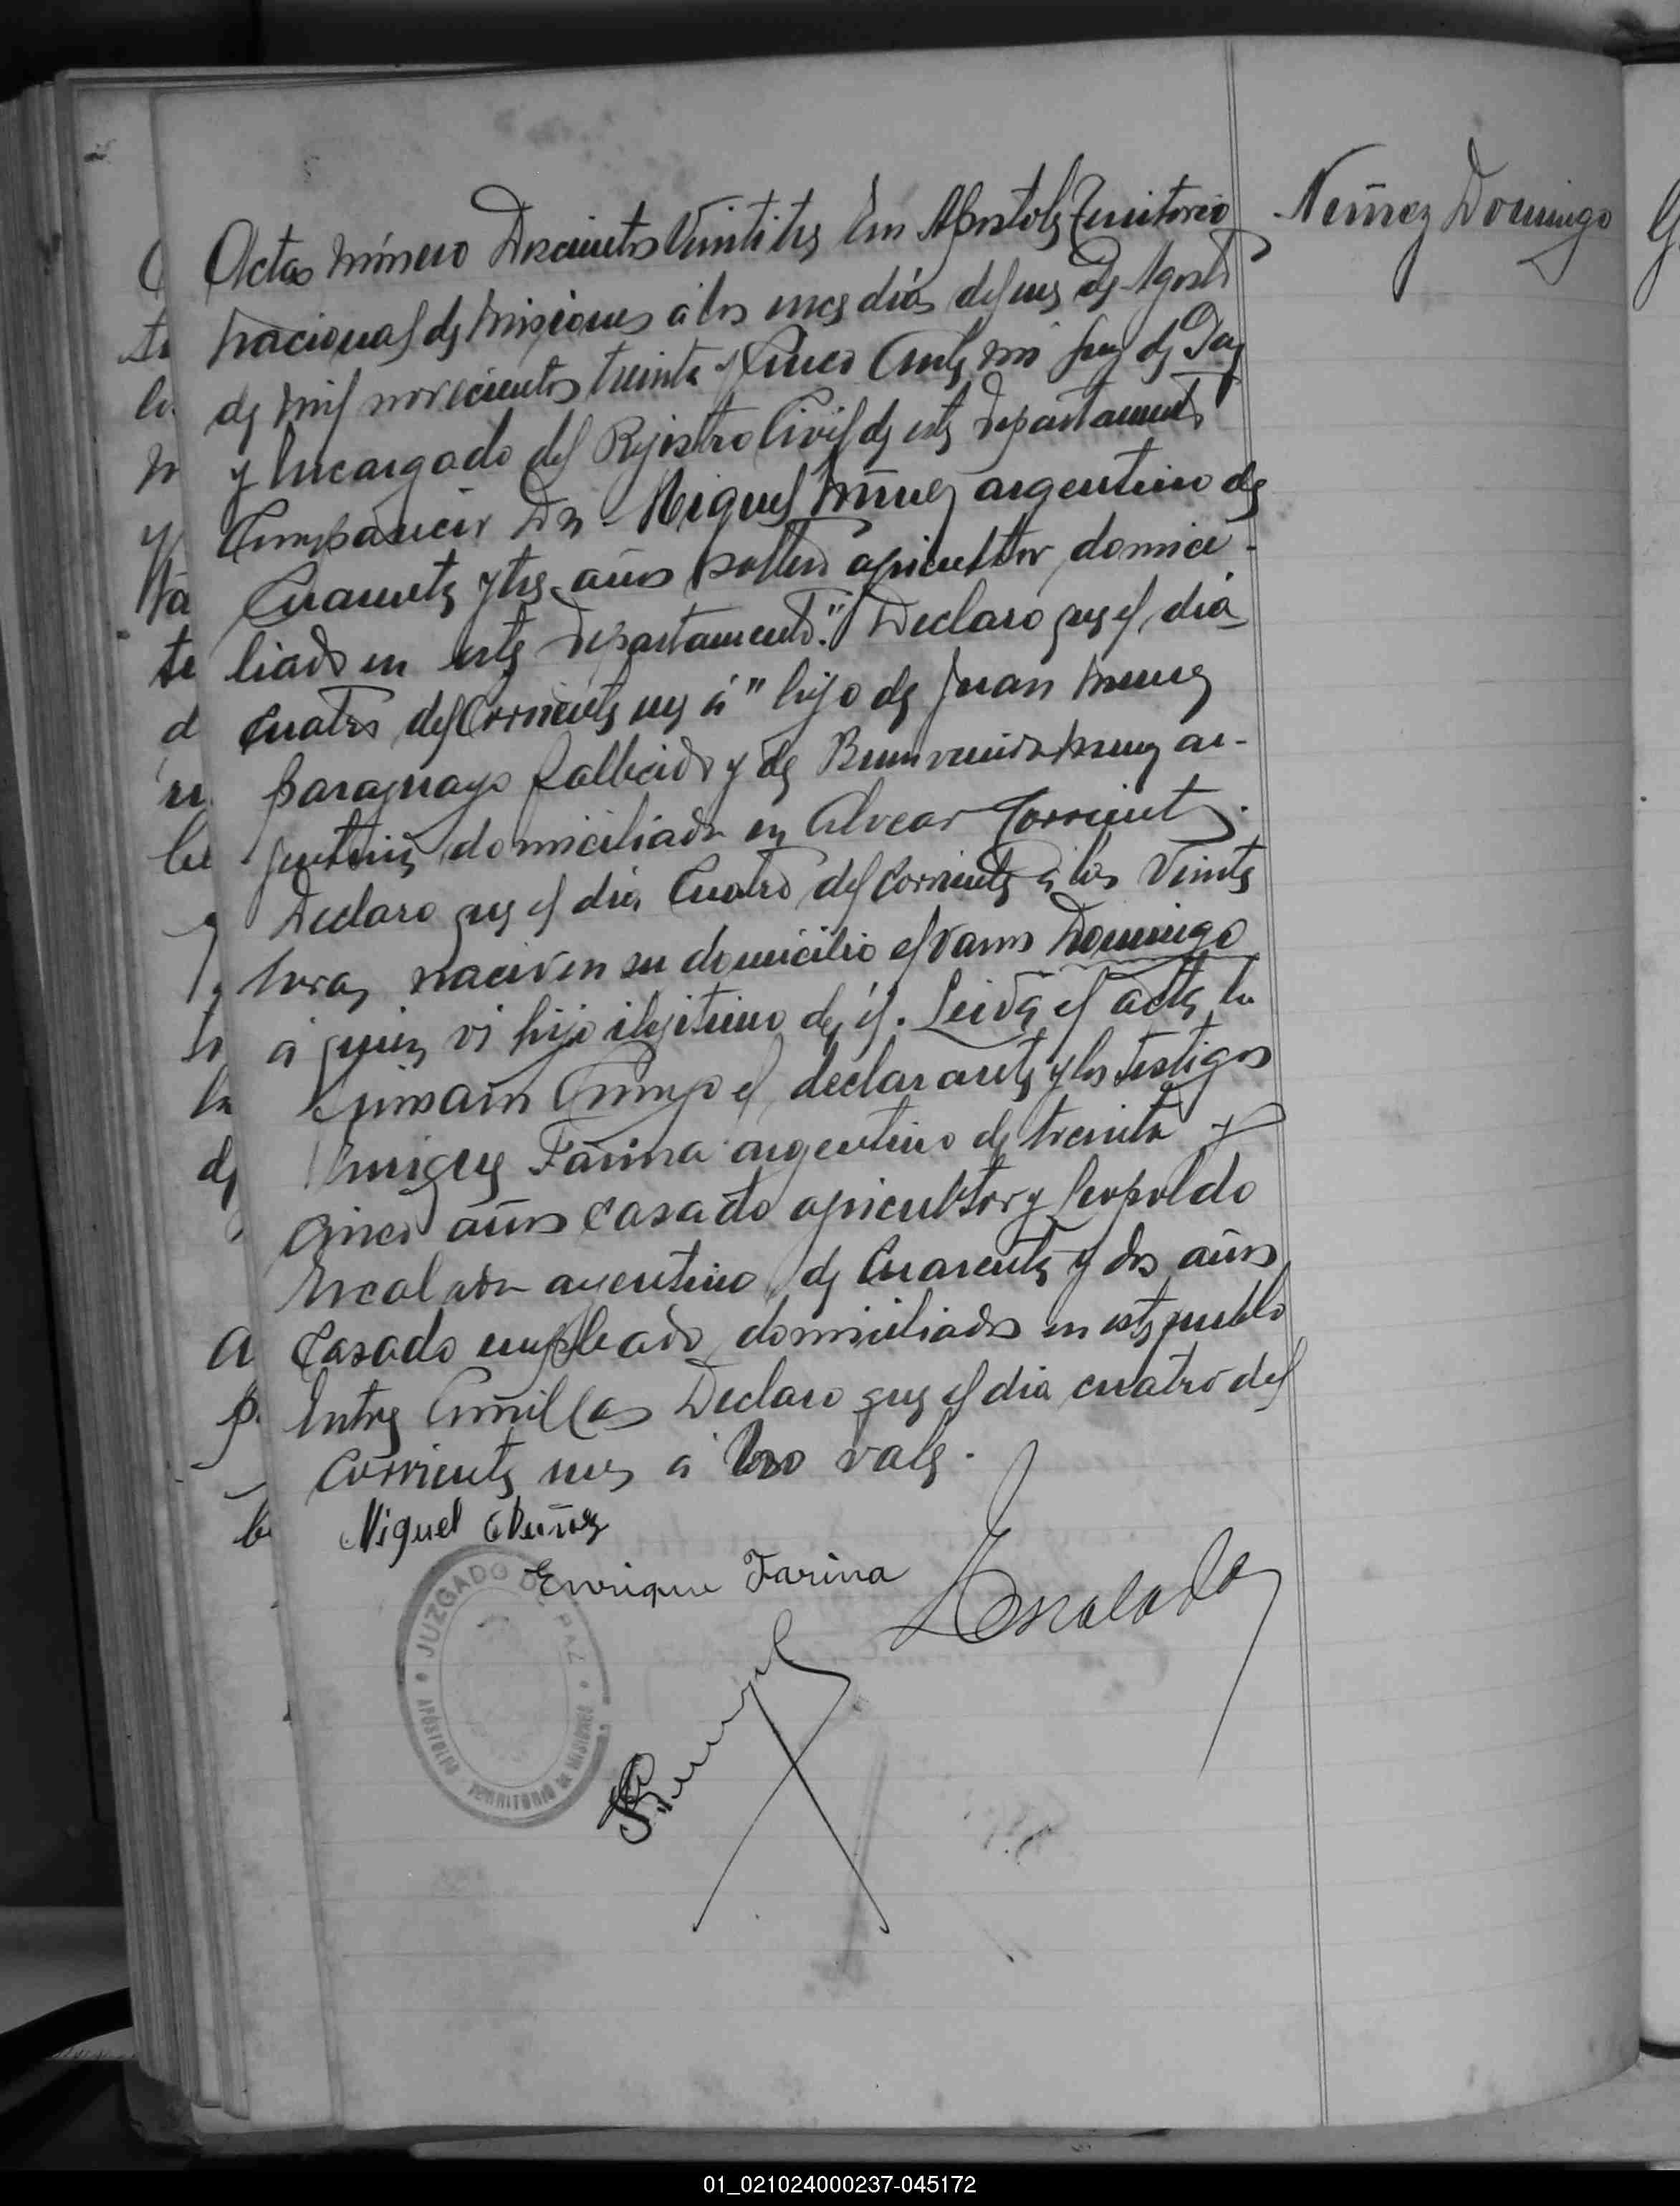 Nuñez Domingo
Acta número Doscientos Veintitres En Apostoles Territorio
nacional de Misiones a los once dias del mes de Agosto
de mil novecientos treinta y Cinco Ante mi Juez de Paz
y Encargado del Rejistro Civil de este Departamento
Compareció Dn. Miguel Nuñez argentino de
Cuarenta y tres años soltero agricultor, domici-
liado en este Departamento." Declaró que el dia
cuatro del Corriente mes á" hijo de Juan Nunez
paraguayo fallecido y de Bienvenida Nunez ar-
jentina domiciliada en Alvear Corrientes.
Declaro que el dia Cuatro del corriente a las Veinte
horas nació en su domicilio el varon Domingo
á quien vi hijo ilejitimo de él. Leida el acta la
firmaron Conmigo el declarante y los testigos
Enrique Farina argentino de treinta y
cinco años casado agricultor y Leopoldo
Escalada argentino de Cuarenta y dos años
Casado empleado domiciliados en este pueblo
Entre Comillas Declaro que el dia cuatro del
corriente mes á no vale.
Miguel Nuñez
Enrique Farina
LEscalada
JUZGADO DE PAZ
APÓSTOLES TERRITORIO DE MISIONES
01_021024000237-045172